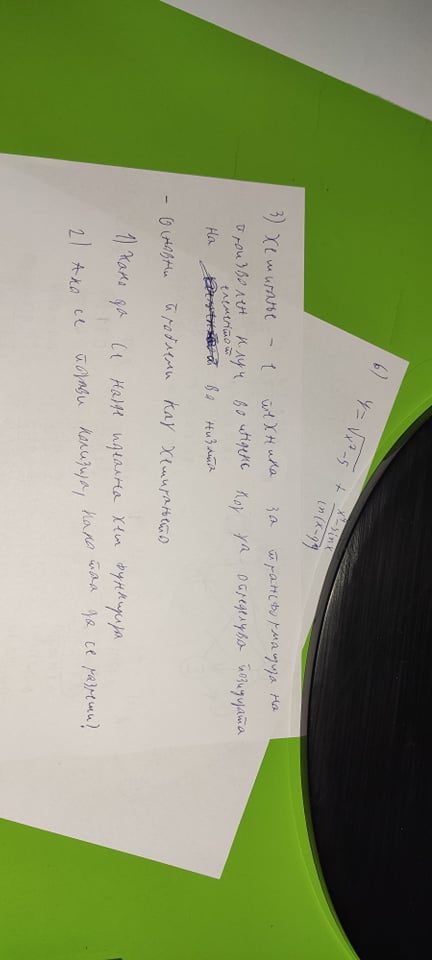 6) y = √x²-5 + x⁴-sinx / ln(x-9)
3) Хеширање - е техника за трансформација на
произволен клуч во индекс кој ја определува позицијата
на елементот во низата
- Основни проблеми кај хеширањето
1) Како да се најде идеална хеш функција
2) Ако се појави колизија, како таа да се разреши?